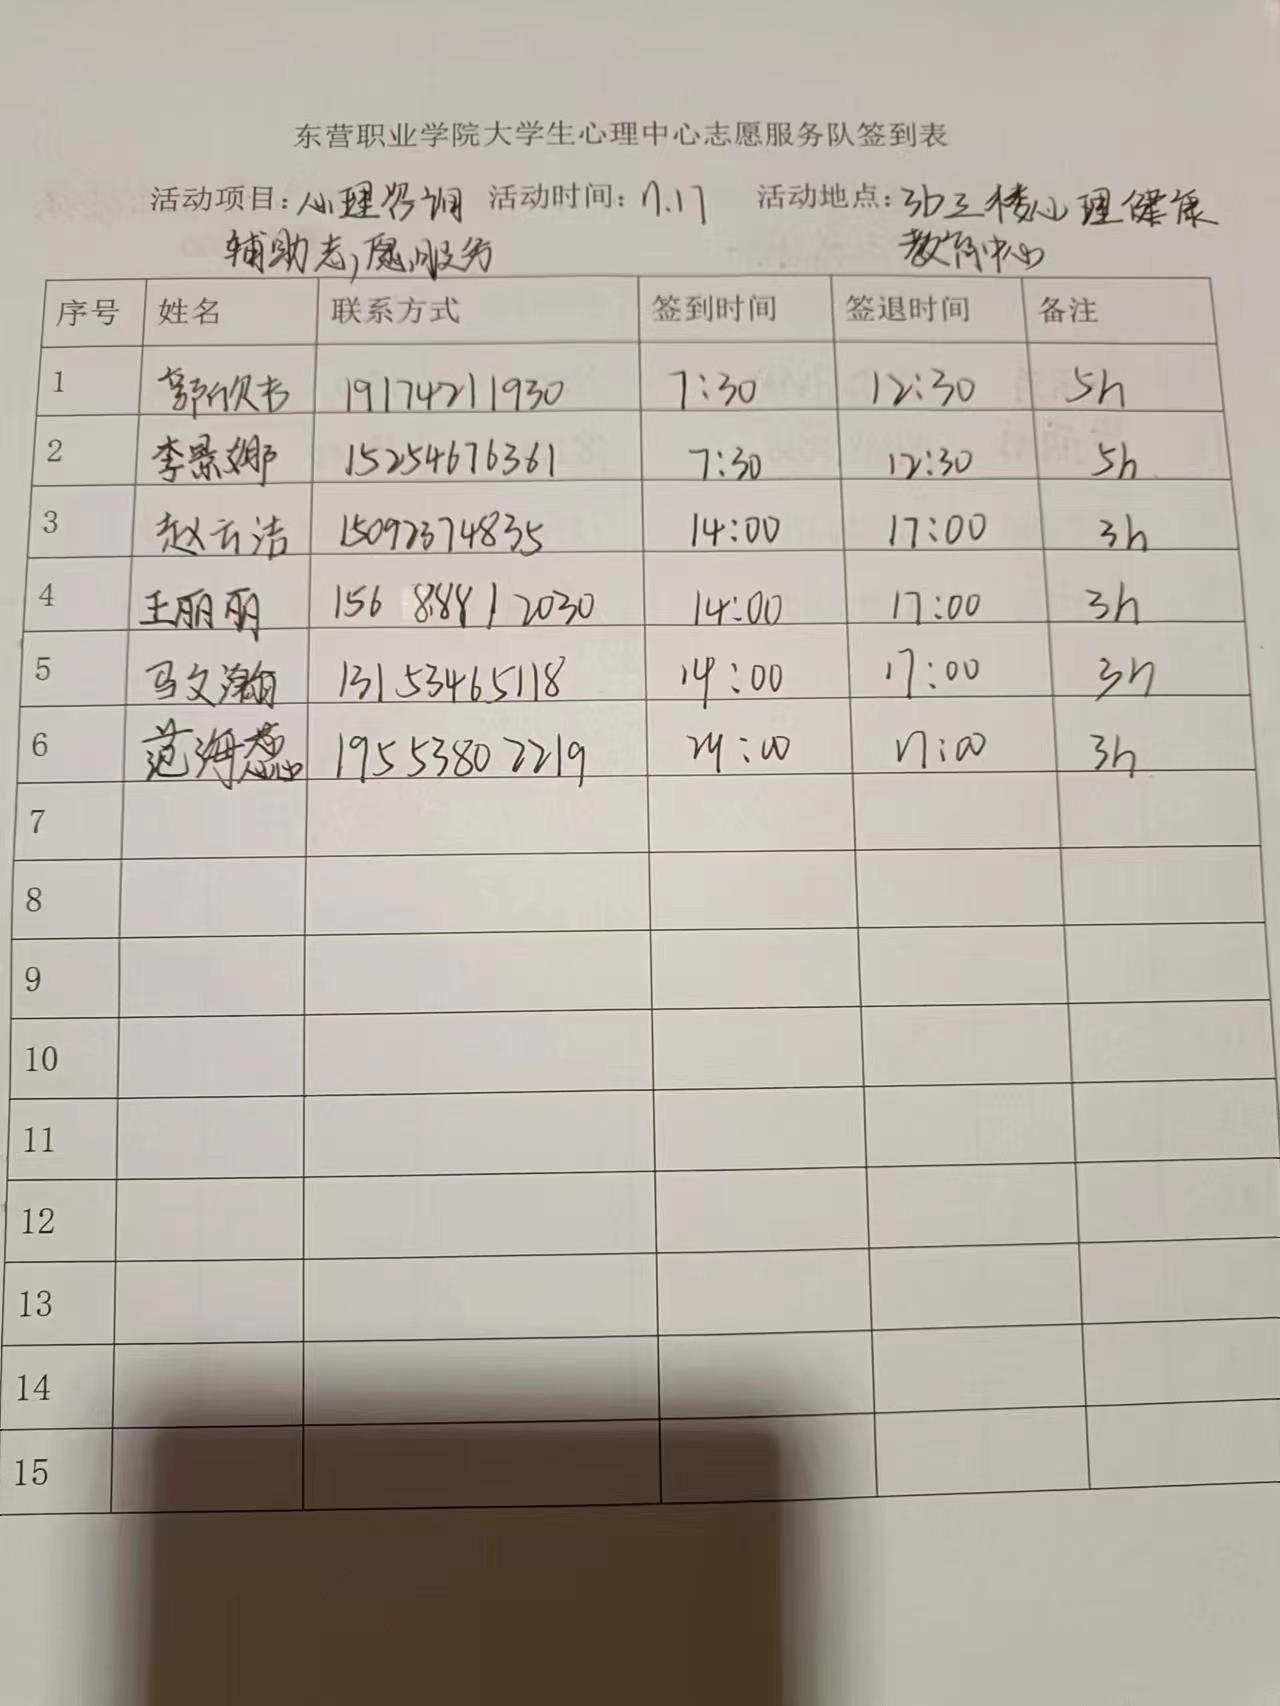 东营职业学院大学生心理中心志愿服务队签到表
活动项目:心理咨询 活动时间:7.17 活动地点:3b三楼心理健康
辅助志愿服务 教育中心
序号 姓名 联系方式 签到时间 签退时间 备注
1 郭欣卉 19174211930 7:30 12:30 5h
2 李景娜 15254676361 7:30 12:30 5h
3 赵云洁 15092374835 14:00 17:00 3h
4 王丽丽 156 8881 2030 14:00 17:00 3h
5 马文瀚 13153465118 14:00 17:00 3h
6 范海蕊 19553802219 14:00 17:00 3h
7
8
9
10
11
12
13
14
15